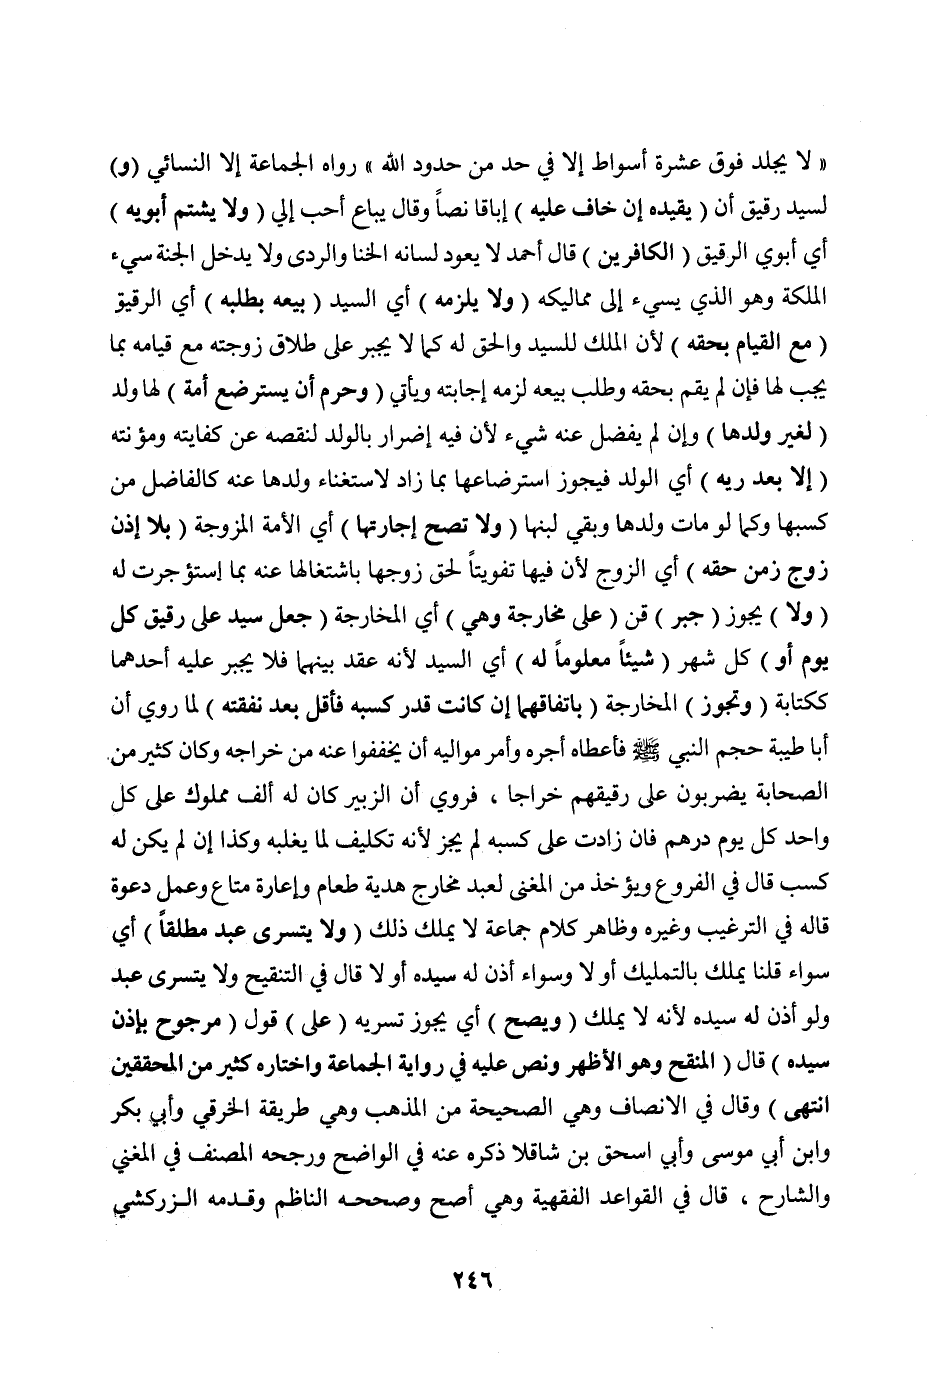 « لا يجلد فوق عشرة أسواط إلا في حد من حدود الله » رواه الجماعة إلا النسائي (و)
لسيد رقيق أن ( يقيده إن خاف عليه ) إباقا نصاً وقال يباع أحب إلي ( ولا يشتم أبويه )
أي أبوي الرقيق ( الكافرين ) قال أحمد لا يعود لسانه الخنا والردى ولا يدخل الجنة سيء
الملكة وهو الذي يسيء إلى مماليكه ( ولا يلزمه ) أي السيد ( بيعه بطلبه ) أي الرقيق
( مع القيام بحقه ) لأن الملك للسيد والحق له كما لا يجبر على طلاق زوجته مع قيامه بما
يجب لها فإن لم يقم بحقه وطلب بيعه لزمه إجابته ويأتي ( وحرم أن يسترضع أمة ) لها ولد
( لغير ولدها ) وإن لم يفضل عنه شيء لأن فيه إضرار بالولد لنقصه عن كفايته ومؤنته
( إلا بعد ريه ) أي الولد فيجوز استرضاعها بما زاد لاستغناء ولدها عنه كالفاضل من
كسبها وكما لو مات ولدها وبقي لبنها ( ولا تصح إجارتها ) أي الأمة المزوجة ( بلا إذن
زوج زمن حقه ) أي الزوج لأن فيها تفويتاً لحق زوجها باشتغالها عنه بما إستؤجرت له
( ولا ) يجوز ( جبر ) قن ( على مخارجة وهي ) أي المخارجة ( جعل سيد على رقيق كل
يوم أو ) كل شهر ( شيئاً معلوماً له ) أي السيد لأنه عقد بينهما فلا يجبر عليه أحدهما
ككتابة ( وتجوز ) المخارجة ( باتفاقهما إن كانت قدر كسبه فأقل بعد نفقته ) لما روي أن
أبا طيبة حجم النبي ﷺ فأعطاه أجره وأمر مواليه أن يخففوا عنه من خراجه وكان كثير من
الصحابة يضربون على رقيقهم خراجا ، فروي أن الزبير كان له ألف مملوك على كل
واحد كل يوم درهم فان زادت على كسبه لم يجز لأنه تكليف لما يغلبه وكذا إن لم يكن له
كسب قال في الفروع ويؤخذ من المغنى لعبد مخارج هدية طعام وإعارة متاع وعمل دعوة
قاله في الترغيب وغيره وظاهر كلام جماعة لا يملك ذلك ( ولا يتسرى عبد مطلقاً ) أي
سواء قلنا يملك بالتمليك أو لا وسواء أذن له سيده أو لا قال في التنقيح ولا يتسرى عبد
ولو أذن له سيده لأنه لا يملك ( ويصح ) أي يجوز تسريه ( على ) قول ( مرجوح بإذن
سيده ) قال ( المنقح وهو الأظهر ونص عليه في رواية الجماعة واختاره كثير من المحققين
انتهى ) وقال في الانصاف وهي الصحيحة من المذهب وهي طريقة الخرقي وأبي بكر
وابن أبي موسى وأبي اسحق بن شاقلا ذكره عنه في الواضح ورجحه المصنف في المغني
والشارح ، قال في القواعد الفقهية وهي أصح وصححه الناظم وقدمه الزركشي
٢٤٦